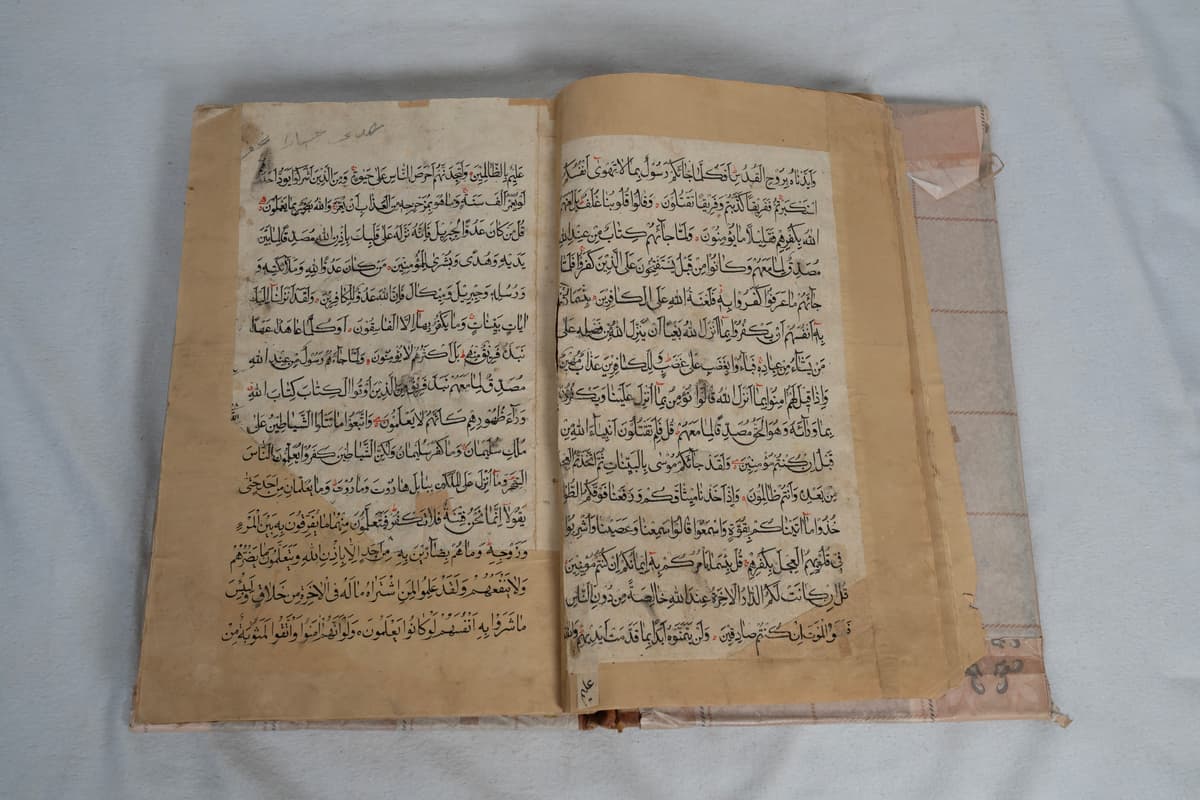 وَاَيَّدْنَاهُ بِرُوحِ الْقُدُسِ اَفَكُلَّمَا جَائَكُمْ رَسُولٌ بِمَا لَا تَهْوٰى اَنْفُسُكُمُ
اسْتَكْبَرْتُمْ فَفَرِيقًا كَذَّبْتُمْ وَفَرِيقًا تَقْتُلُونَ وَقَالُوا قُلُوبُنَا غُلْفٌ بَلْ لَعَنَهُمُ
اللهُ بِكُفْرِهِمْ فَقَلِيلًا مَا يُؤْمِنُونَ وَلَمَّا جَائَهُمْ كِتَابٌ مِنْ عِنْدِ اللهِ
مُصَدِّقٌ لِمَا مَعَهُمْ وَكَانُوا مِنْ قَبْلُ يَسْتَفْتِحُونَ عَلَى الَّذِينَ كَفَرُوا فَلَمَّا
جَائَهُمْ مَا عَرَفُوا كَفَرُوا بِهِ فَلَعْنَةُ اللهِ عَلَى الْكَافِرِينَ بِئْسَمَا
بِهِ اَنْفُسَهُمْ اَنْ يَكْفُرُوا بِمَا اَنْزَلَ اللهُ بَغْيًا اَنْ يُنَزِّلَ اللهُ مِنْ فَضْلِهِ عَلٰى
مَنْ يَشَاءُ مِنْ عِبَادِهِ فَبَاءُوا بِغَضَبٍ عَلٰى غَضَبٍ وَلِلْكَافِرِينَ عَذَابٌ مُهِينٌ
وَاِذَا قِيلَ لَهُمْ اٰمِنُوا بِمَا اَنْزَلَ اللهُ قَالُوا نُؤْمِنُ بِمَا اُنْزِلَ عَلَيْنَا وَيَكْفُرُونَ
بِمَا وَرَائَهُ وَهُوَ الْحَقُّ مُصَدِّقًا لِمَا مَعَهُمْ قُلْ فَلِمَ تَقْتُلُونَ اَنْبِيَاءَ اللهِ مِنْ
قَبْلُ اِنْ كُنْتُمْ مُؤْمِنِينَ وَلَقَدْ جَائَكُمْ مُوسٰى بِالْبَيِّنَاتِ ثُمَّ اتَّخَذْتُمُ الْعِجْلَ
مِنْ بَعْدِهِ وَاَنْتُمْ ظَالِمُونَ وَاِذْ اَخَذْنَا مِيثَاقَكُمْ وَرَفَعْنَا فَوْقَكُمُ الطُّورَ
خُذُوا مَا اٰتَيْنَاكُمْ بِقُوَّةٍ وَاسْمَعُوا قَالُوا سَمِعْنَا وَعَصَيْنَا وَاُشْرِبُوا
فِي قُلُوبِهِمُ الْعِجْلَ بِكُفْرِهِمْ قُلْ بِئْسَمَا يَأْمُرُكُمْ بِهِ اِيمَانُكُمْ اِنْ كُنْتُمْ مُؤْمِنِينَ
قُلْ اِنْ كَانَتْ لَكُمُ الدَّارُ الْاٰخِرَةُ عِنْدَ اللهِ خَالِصَةً مِنْ دُونِ النَّاسِ
فَتَمَنَّوُا الْمَوْتَ اِنْ كُنْتُمْ صَادِقِينَ وَلَنْ يَتَمَنَّوْهُ اَبَدًا بِمَا قَدَّمَتْ اَيْدِيهِمْ وَاللهُ
عليم
عَلِيمٌ بِالظَّالِمِينَ وَلَتَجِدَنَّهُمْ اَحْرَصَ النَّاسِ عَلٰى حَيٰوةٍ وَمِنَ الَّذِينَ اَشْرَكُوا يَوَدُّ اَحَدُهُمْ
لَوْ يُعَمَّرُ اَلْفَ سَنَةٍ وَمَا هُوَ بِمُزَحْزِحِهِ مِنَ الْعَذَابِ اَنْ يُعَمَّرَ وَاللهُ بَصِيرٌ بِمَا يَعْمَلُونَ
قُلْ مَنْ كَانَ عَدُوًّا لِجِبْرِيلَ فَاِنَّهُ نَزَّلَهُ عَلٰى قَلْبِكَ بِاِذْنِ اللهِ مُصَدِّقًا لِمَا بَيْنَ
يَدَيْهِ وَهُدًى وَبُشْرٰى لِلْمُؤْمِنِينَ مَنْ كَانَ عَدُوًّا لِلّٰهِ وَمَلَائِكَتِهِ وَ
وَرُسُلِهِ وَجِبْرِيلَ وَمِيكَالَ فَاِنَّ اللهَ عَدُوٌّ لِلْكَافِرِينَ وَلَقَدْ اَنْزَلْنَا اِلَيْكَ
اٰيَاتٍ بَيِّنَاتٍ وَمَا يَكْفُرُ بِهَا اِلَّا الْفَاسِقُونَ اَوَكُلَّمَا عَاهَدُوا عَهْدًا
نَبَذَهُ فَرِيقٌ مِنْهُمْ بَلْ اَكْثَرُهُمْ لَا يُؤْمِنُونَ وَلَمَّا جَاءَهُمْ رَسُولٌ مِنْ عِنْدِ اللهِ
مُصَدِّقٌ لِمَا مَعَهُمْ نَبَذَ فَرِيقٌ مِنَ الَّذِينَ اُوتُوا الْكِتَابَ كِتَابَ اللهِ
وَرَاءَ ظُهُورِهِمْ كَاَنَّهُمْ لَا يَعْلَمُونَ وَاتَّبَعُوا مَا تَتْلُوا الشَّيَاطِينُ عَلٰى
مُلْكِ سُلَيْمَانَ وَمَا كَفَرَ سُلَيْمَانُ وَلٰكِنَّ الشَّيَاطِينَ كَفَرُوا يُعَلِّمُونَ النَّاسَ
السِّحْرَ وَمَا اُنْزِلَ عَلَى الْمَلَكَيْنِ بِبَابِلَ هَارُوتَ وَمَارُوتَ وَمَا يُعَلِّمَانِ مِنْ اَحَدٍ حَتّٰى
يَقُولَا اِنَّمَا نَحْنُ فِتْنَةٌ فَلَا تَكْفُرْ فَيَتَعَلَّمُونَ مِنْهُمَا مَا يُفَرِّقُونَ بِهِ بَيْنَ الْمَرْءِ
وَزَوْجِهِ وَمَا هُمْ بِضَارِّينَ بِهِ مِنْ اَحَدٍ اِلَّا بِاِذْنِ اللهِ وَيَتَعَلَّمُونَ مَا يَضُرُّهُمْ
وَلَا يَنْفَعُهُمْ وَلَقَدْ عَلِمُوا لَمَنِ اشْتَرَاهُ مَا لَهُ فِي الْاٰخِرَةِ مِنْ خَلَاقٍ وَلَبِئْسَ
مَا شَرَوْا بِهِ اَنْفُسَهُمْ لَوْ كَانُوا يَعْلَمُونَ وَلَوْ اَنَّهُمْ اٰمَنُوا وَاتَّقَوْا لَمَثُوبَةٌ مِنْ